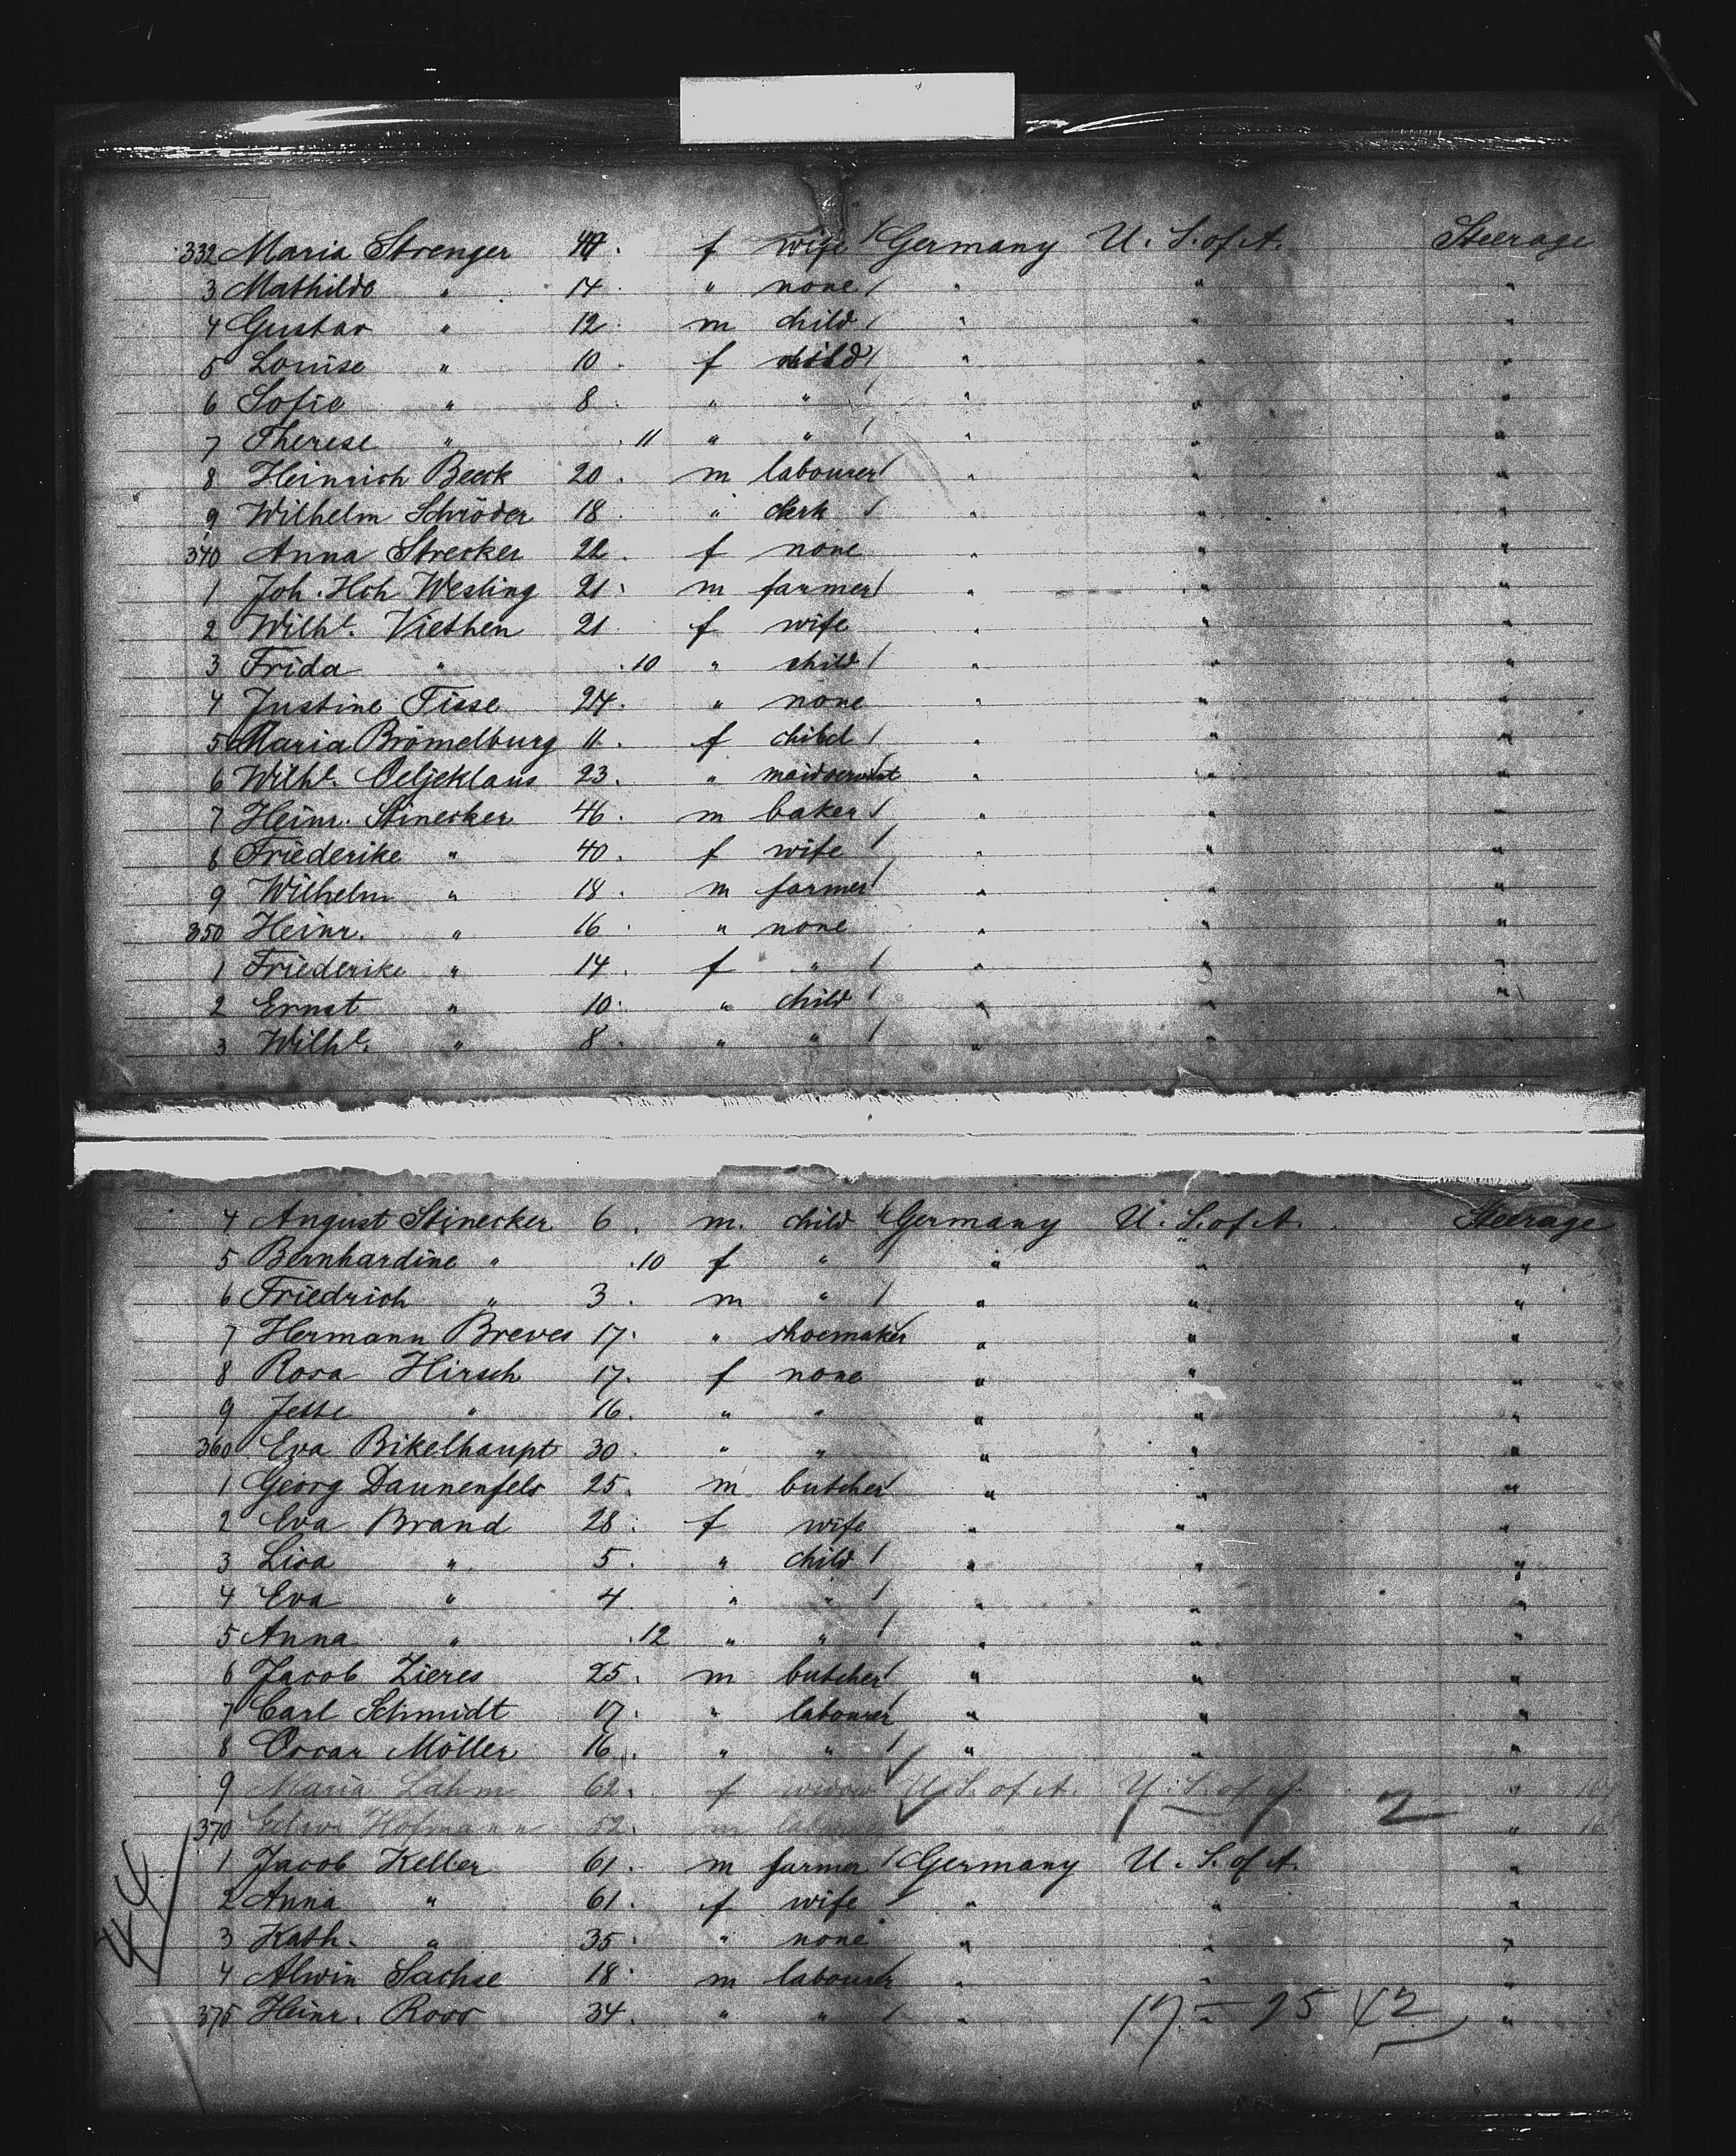 332 Maria Strenger 47. f wife Germany U. S. of A. Steerage
3 Mathilde " 14. " none " " "
4 Gustav " 12. m child " " "
5 Louise " 10. f child " " "
6 Sofie " 8. " " " " "
7 Therese " .11 " " " " "
8 Heinrich Beeck 20. m labourer " " "
9 Wilhelm Schröder 18. " clerk " " "
340 Anna Strecker 22. f none " " "
1 Joh. Hch Wesling 21. m farmer " " "
2 Wilhe. Viethen 21. f wife " " "
3 Frida " .10 " child " " "
4 Justine Tisse 24. " none " " "
5 Maria Brömelburg 11. f child " " "
6 Wilhe. Oeljeklaus 23. " maidservant " " "
7 Heinr. Stinecker 46. m baker " " "
8 Friederike " 40. f wife " " "
9 Wilhelm " 18. m farmer " " "
350 Heinr. " 16. " none " " "
1 Friederike " 14. f " " " "
2 Ernst " 10. " child " " "
3 Wilhe. " 8. " " " " "
4 August Stinecker 6. m. child Germany U. S. of A. Steerage
5 Bernhardine " .10 f " " " "
6 Friedrich " 3. m " " " "
7 Hermann Breves 17. " shoemaker " " "
8 Rosa Hirsch 17. f none " " "
9 Jette " 16. " " " " "
360 Eva Bikelhaupt 30. " " " " "
1 Georg Daunenfels 25. m butcher " " "
2 Eva Brand 28. f wife " " "
3 Lisa " 5. " child " " "
4 Eva " 4. " " " " "
5 Anna " .12 " " " " "
6 Jacob Zieres 25. m butcher " " "
7 Carl Schmidt 17. " labourer " " "
8 Oscar Möller 16. " " " " "
9 Maria Lahm 62. f widow U. S. of A. U. S. of A. 2 "
370 Hofmann 52. m labourer " "
1 Jacob Keller 61. m farmer Germany U. S. of A. "
2 Anna " 61. f wife " " "
3 Kath. " 35. " none " " "
4 Alwin Sachse 18. m labourer " " "
375 Heinr. Roos 34. " " " " "
44
17 - 25 42